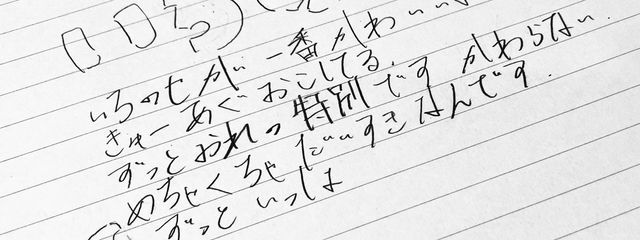 いちのせが一番かわいい
きゅーあぐおこしてる.
ずっとおれの特別です かわらない.
めちゃくちゃだいすきなんです.
ずっといっしょ